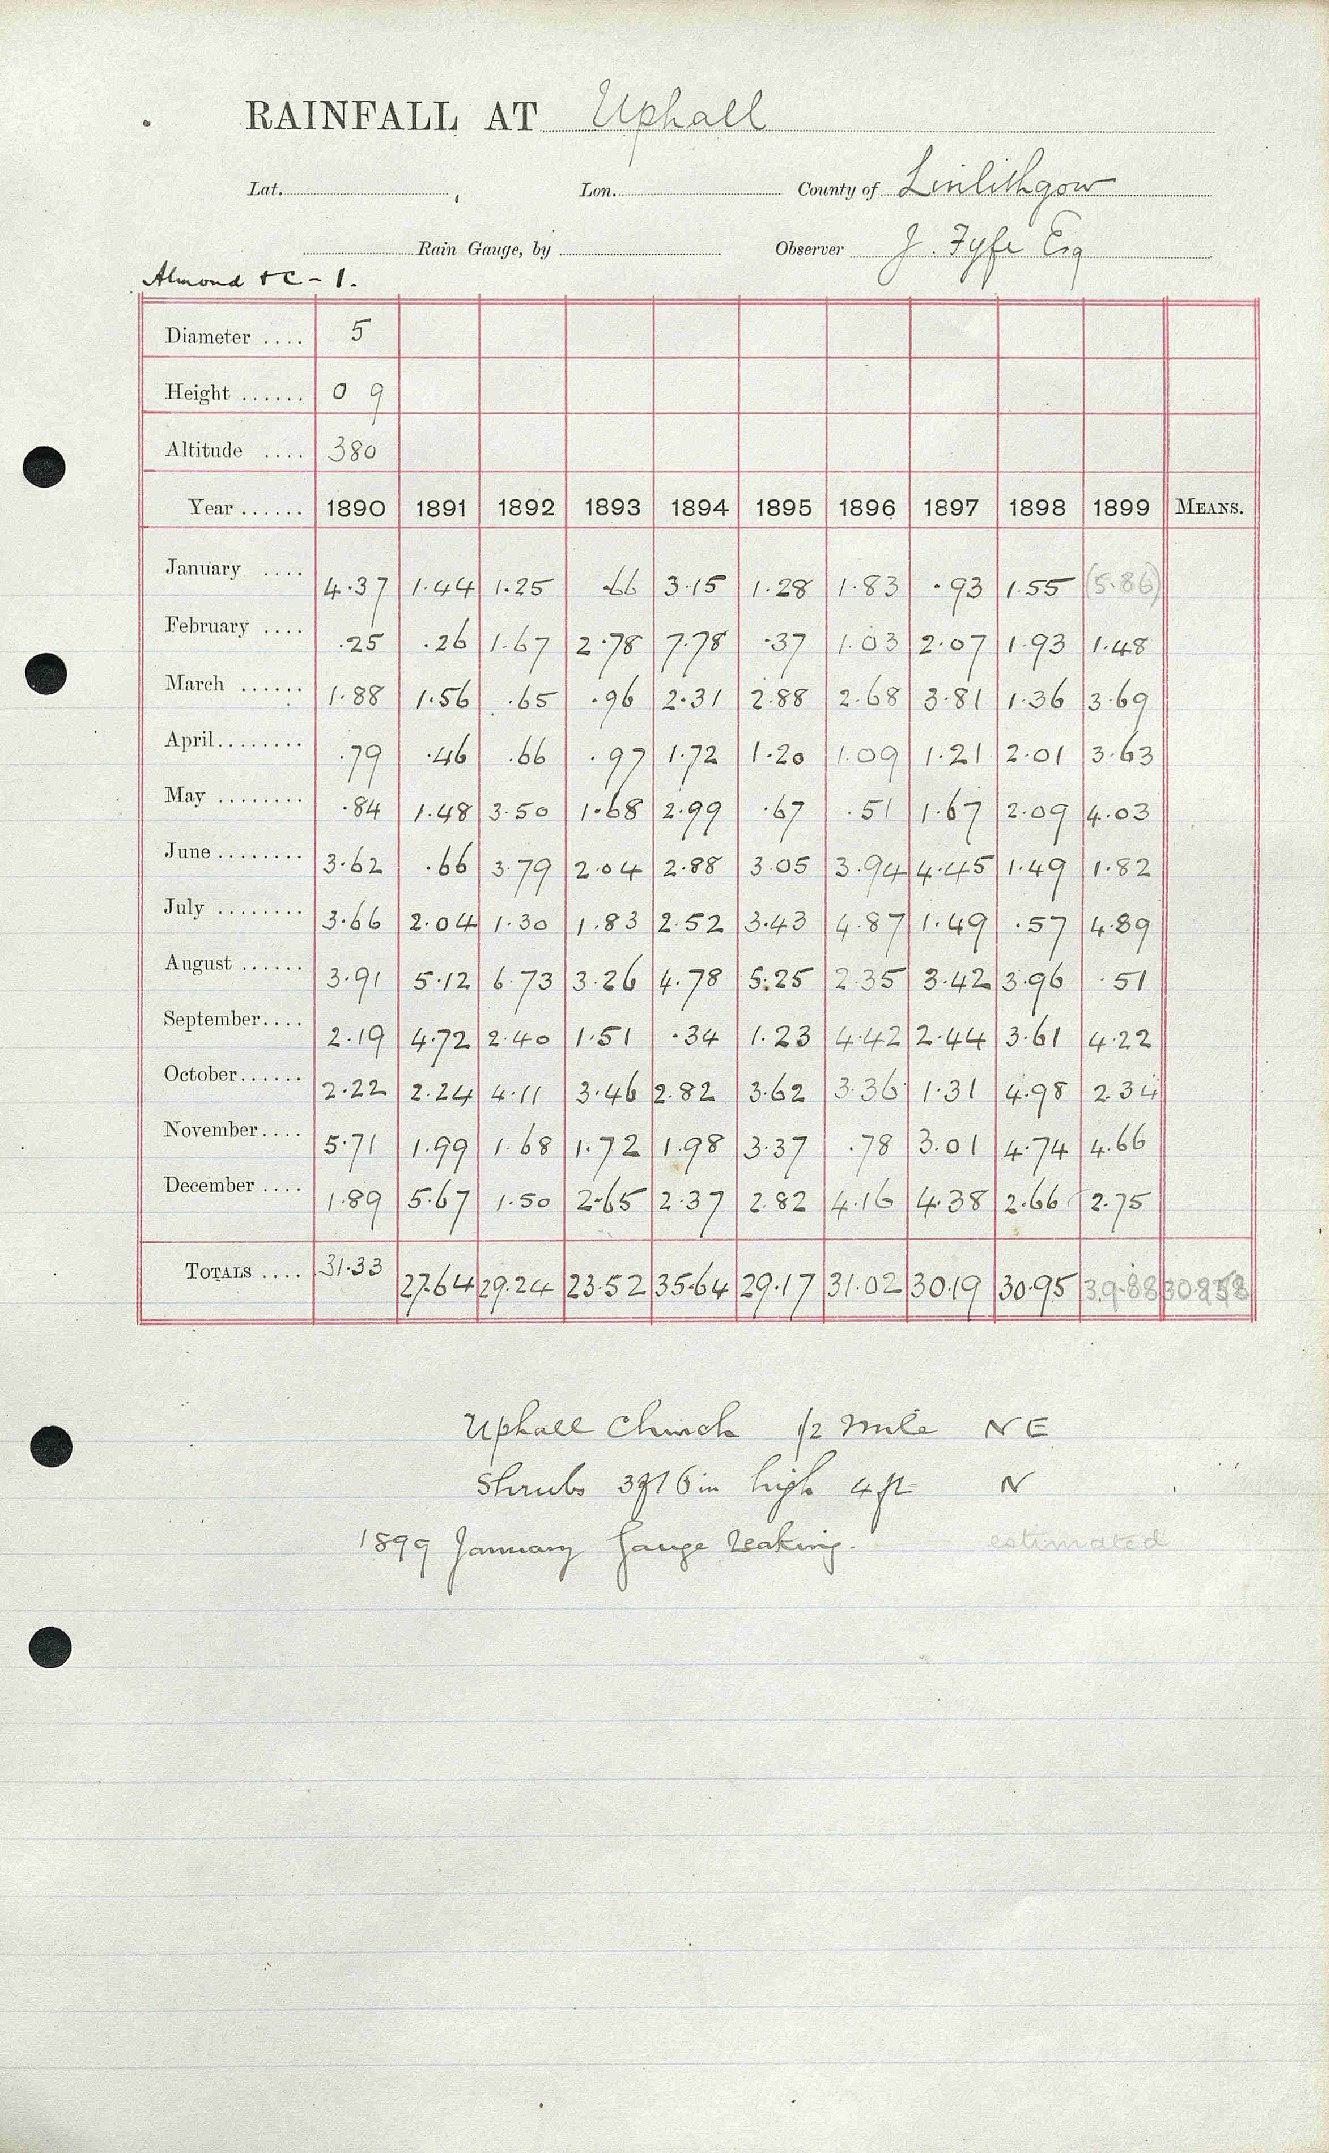 RAINFALL AT Uphall
Lat. Lon. County of Linlithgow
Rain Gauge, by Observer J. Fyfe Esq
Almond & C - 1.
Diameter .... 5
Height ...... 0 9
Altitude .... 380
Year ...... 1890 1891 1892 1893 1894 1895 1896 1897 1898 1899 MEANS.
January .... 4.37 1.44 1.25 .66 3.15 1.28 1.83 .93 1.55 (5.86)
February .... .25 .26 1.67 2.78 7.78 .37 1.03 2.07 1.93 1.48
March ...... 1.88 1.56 .65 .96 2.31 2.88 2.68 3.81 1.36 3.69
April ........ .79 .46 .66 .97 1.72 1.20 1.09 1.21 2.01 3.63
May ........ .84 1.48 3.50 1.68 2.99 .67 .51 1.67 2.09 4.03
June ........ 3.62 .66 3.79 2.04 2.88 3.05 3.94 4.45 1.49 1.82
July ........ 3.66 2.04 1.30 1.83 2.52 3.43 4.87 1.49 .57 4.89
August ...... 3.91 5.12 6.73 3.26 4.78 5.25 2.35 3.42 3.96 .51
September.... 2.19 4.72 2.40 1.51 .34 1.23 4.42 2.44 3.61 4.22
October...... 2.22 2.24 4.11 3.46 2.82 3.62 3.36 1.31 4.98 2.34
November.... 5.71 1.99 1.68 1.72 1.98 3.37 .78 3.01 4.74 4.66
December .... 1.89 5.67 1.50 2.65 2.37 2.82 4.16 4.38 2.66 2.75
TOTALS .... 31.33 27.64 29.24 23.52 35.64 29.17 31.02 30.19 30.95 39.88
Uphall Church 1/2 mile N E
Shrubs 3ft 6in high 4 ft N
1899 January Gauge Leaking. estimated